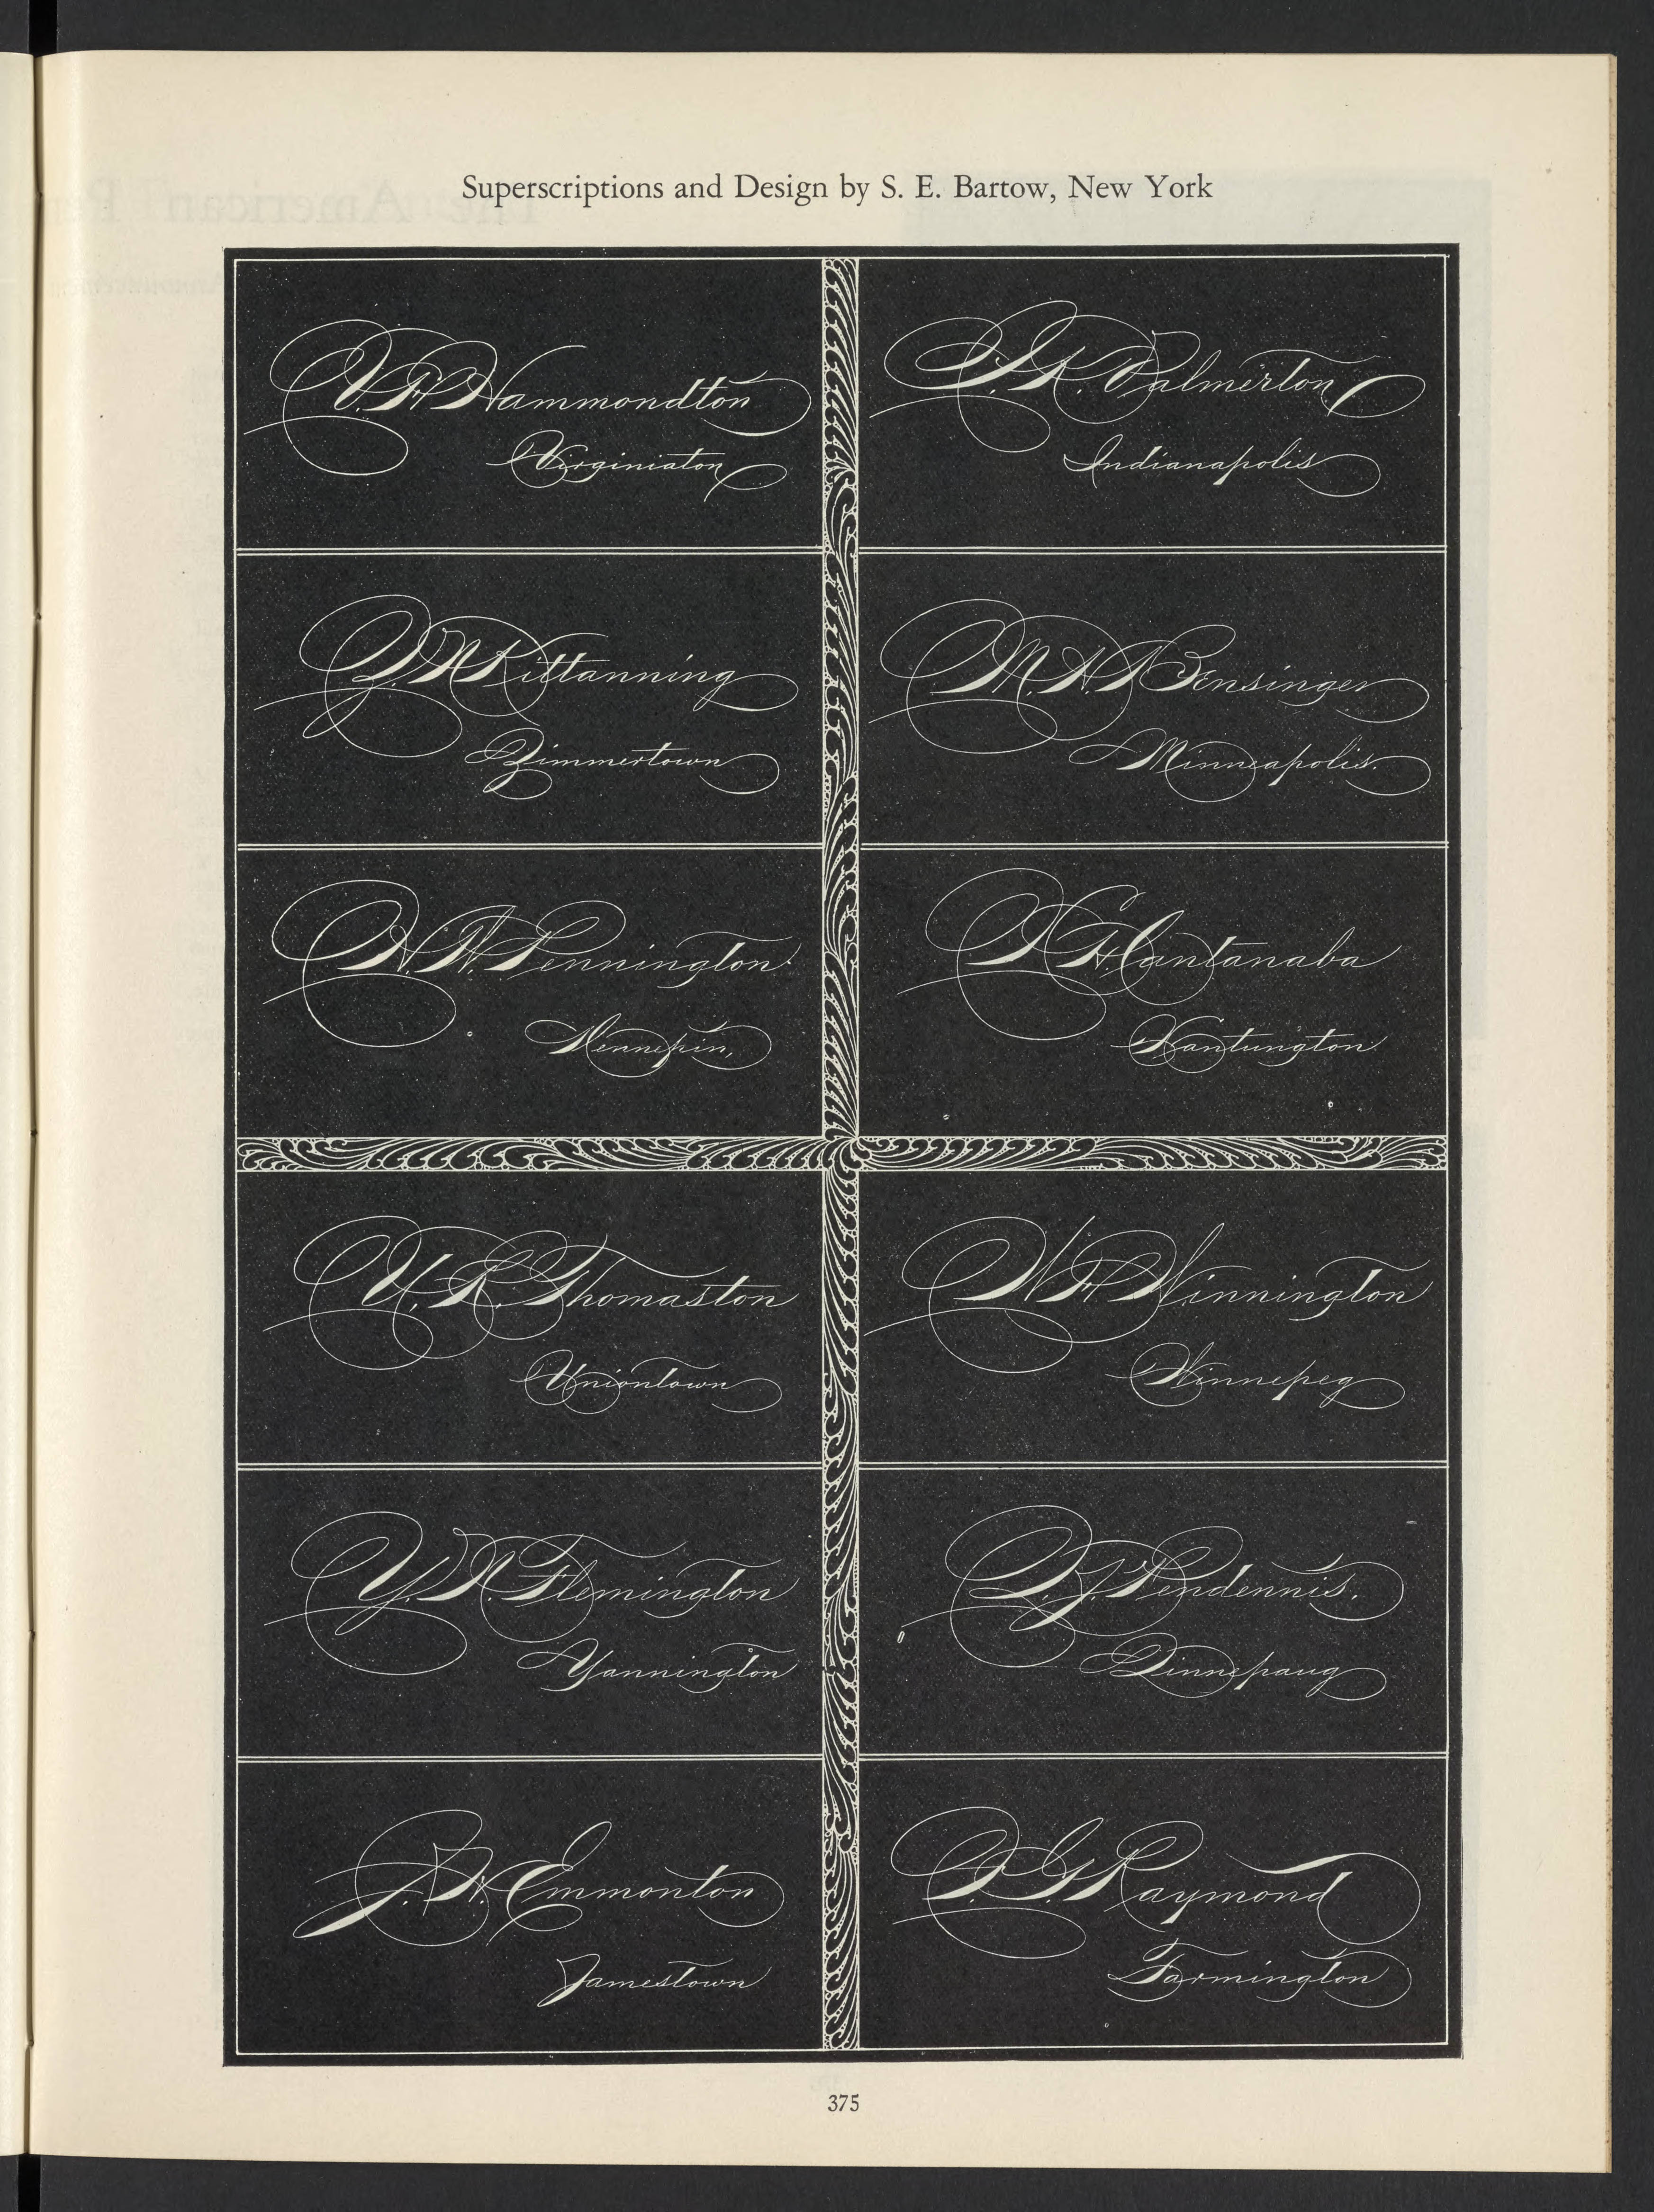 Superscriptions and Design by S. E. Bartow, New York
V. H. Hammondton
Virginiaton
I. K. Palmerton
Indianapolis
Z. N. Kittanning
Zimmertown
M. A. Bensinger
Minneapolis.
H. W. Pennington
Hennepin,
X. H. Cantanaba
Xantungton
U. R. Thomaston
Uniontown
W. H. Winnington
Winnepeg
Y. N. Flemington
Yannington
Q. J. Pendennis.
Qinnepaug
J. W. Emmonton
Jamestown
F. G. Raymond
Farmington
375